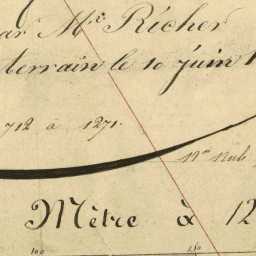 ar Mr. Richer
terrain le 10 juin 1
712 à 1271.
Mètre à 12
100 250